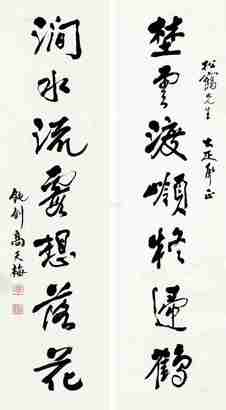 松鶴先生 大疋
埜雲渡嶺疑歸鶴
澗水流霞想落花
鈍劍高天梅